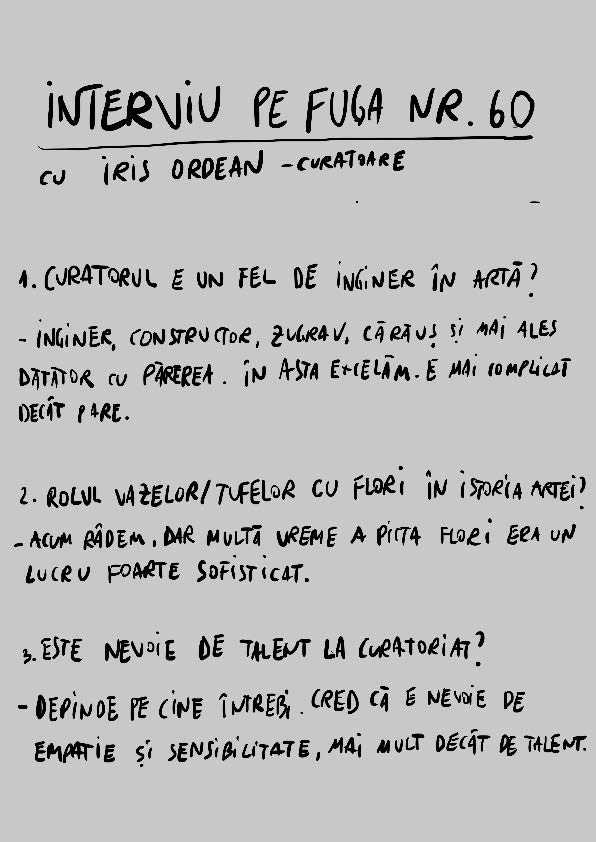 INTERVIU PE FUGA NR. 60
CU IRIS ORDEAN - CURATOARE
1. CURATORUL E UN FEL DE INGINER ÎN ARTĂ?
- INGINER, CONSTRUCTOR, ZUGRAV, CĂRĂUȘ ȘI MAI ALES
DĂTĂTOR CU PĂREREA. ÎN ASTA EXCELĂM. E MAI COMPLICAT
DECÂT PARE.
2. ROLUL VAZELOR/TUFELOR CU FLORI ÎN ISTORIA ARTEI?
- ACUM RÂDEM, DAR MULTĂ VREME A PICTA FLORI ERA UN
LUCRU FOARTE SOFISTICAT.
3. ESTE NEVOIE DE TALENT LA CURATORIAT?
- DEPINDE PE CINE ÎNTREBI. CRED CĂ E NEVOIE DE
EMPATIE ȘI SENSIBILITATE, MAI MULT DECÂT DE TALENT.